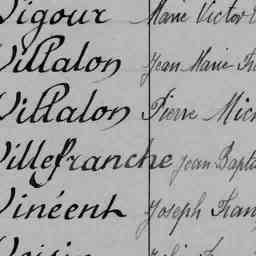 Vigour Marie Victor
Villalon Jean Marie
Villalon Pierre Mich
Villefranche Jean Bapti
Vincent Joseph Fran